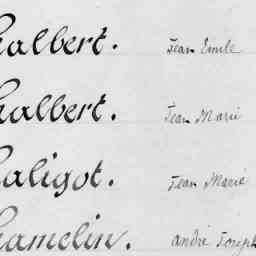 halbert. Jean Emile
halbert. Jean Marie
haligot. Jean Marie
hamelin. andré Joseph